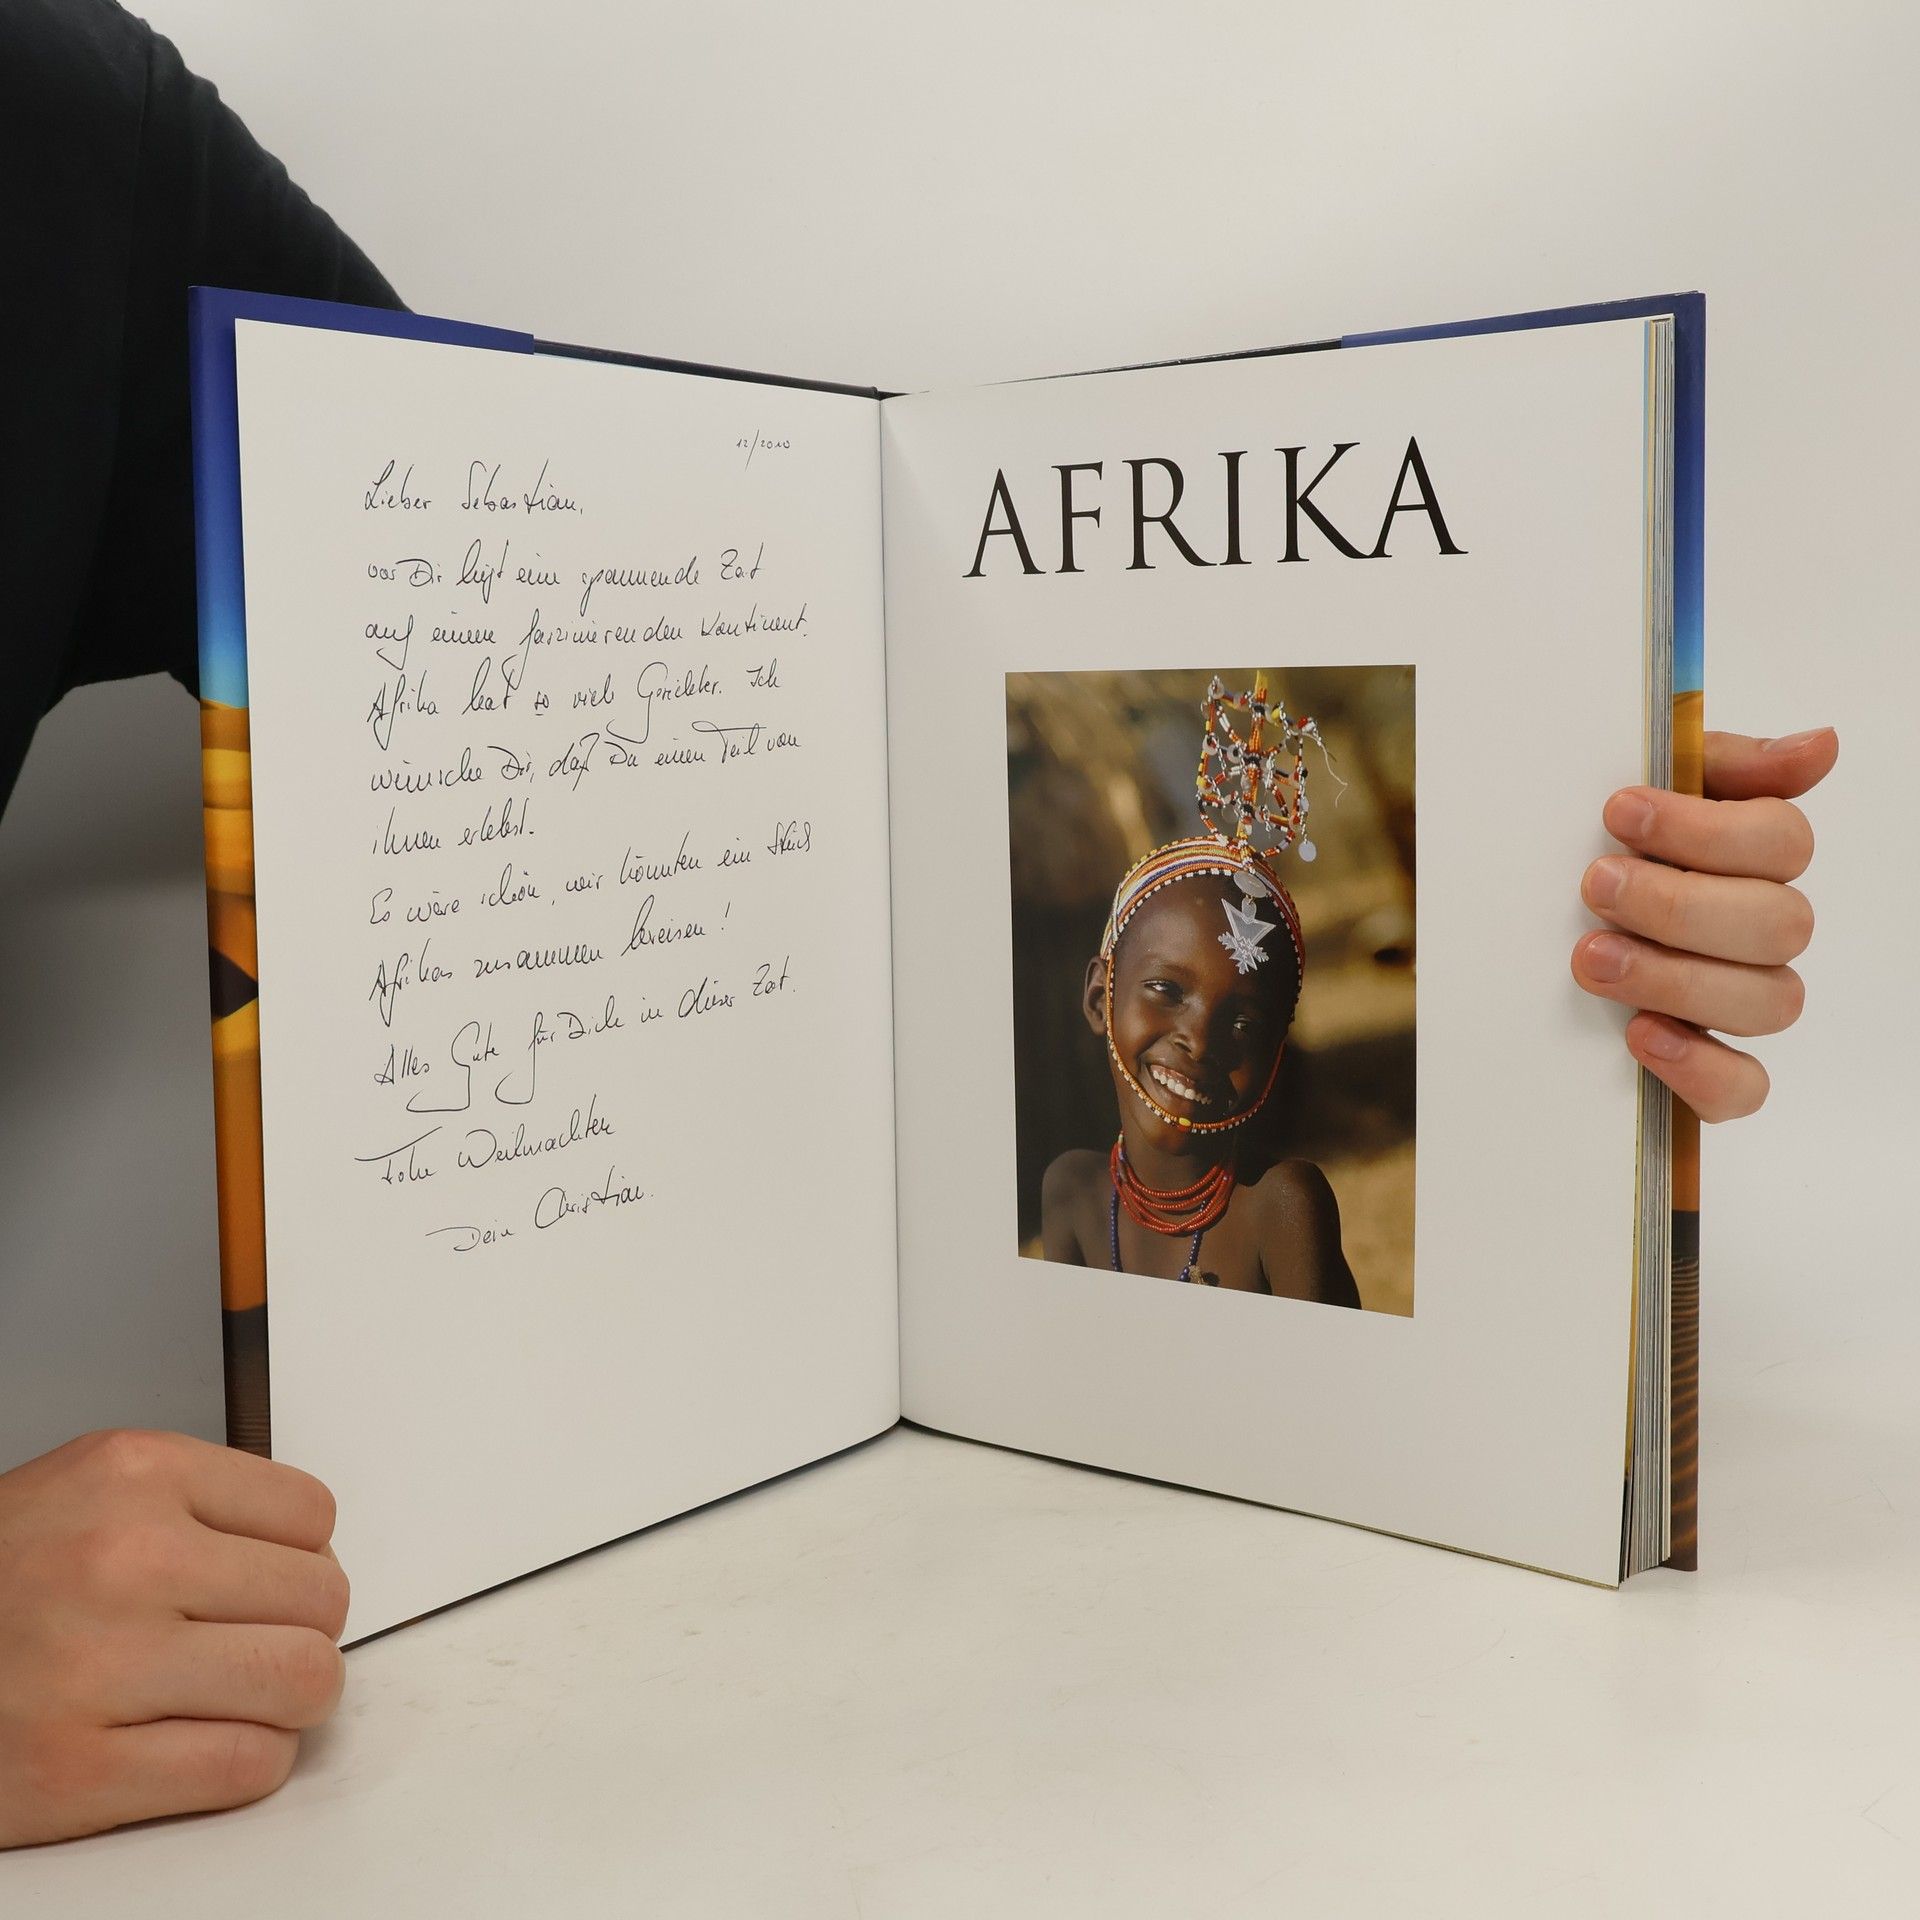 12/2010
Lieber Sebastian,
vor Dir liegt eine spannende Zeit
auf einem faszinierenden Kontinent.
Afrika hat so viele Gesichter. Ich
wünsche Dir, daß Du einen Teil von
ihnen erlebst.
Es wäre schön, wir könnten ein Stück
Afrikas zusammen bereisen!
Alles Gute für Dich in dieser Zeit.
Frohe Weihnachten
Dein Christian.
AFRIKA